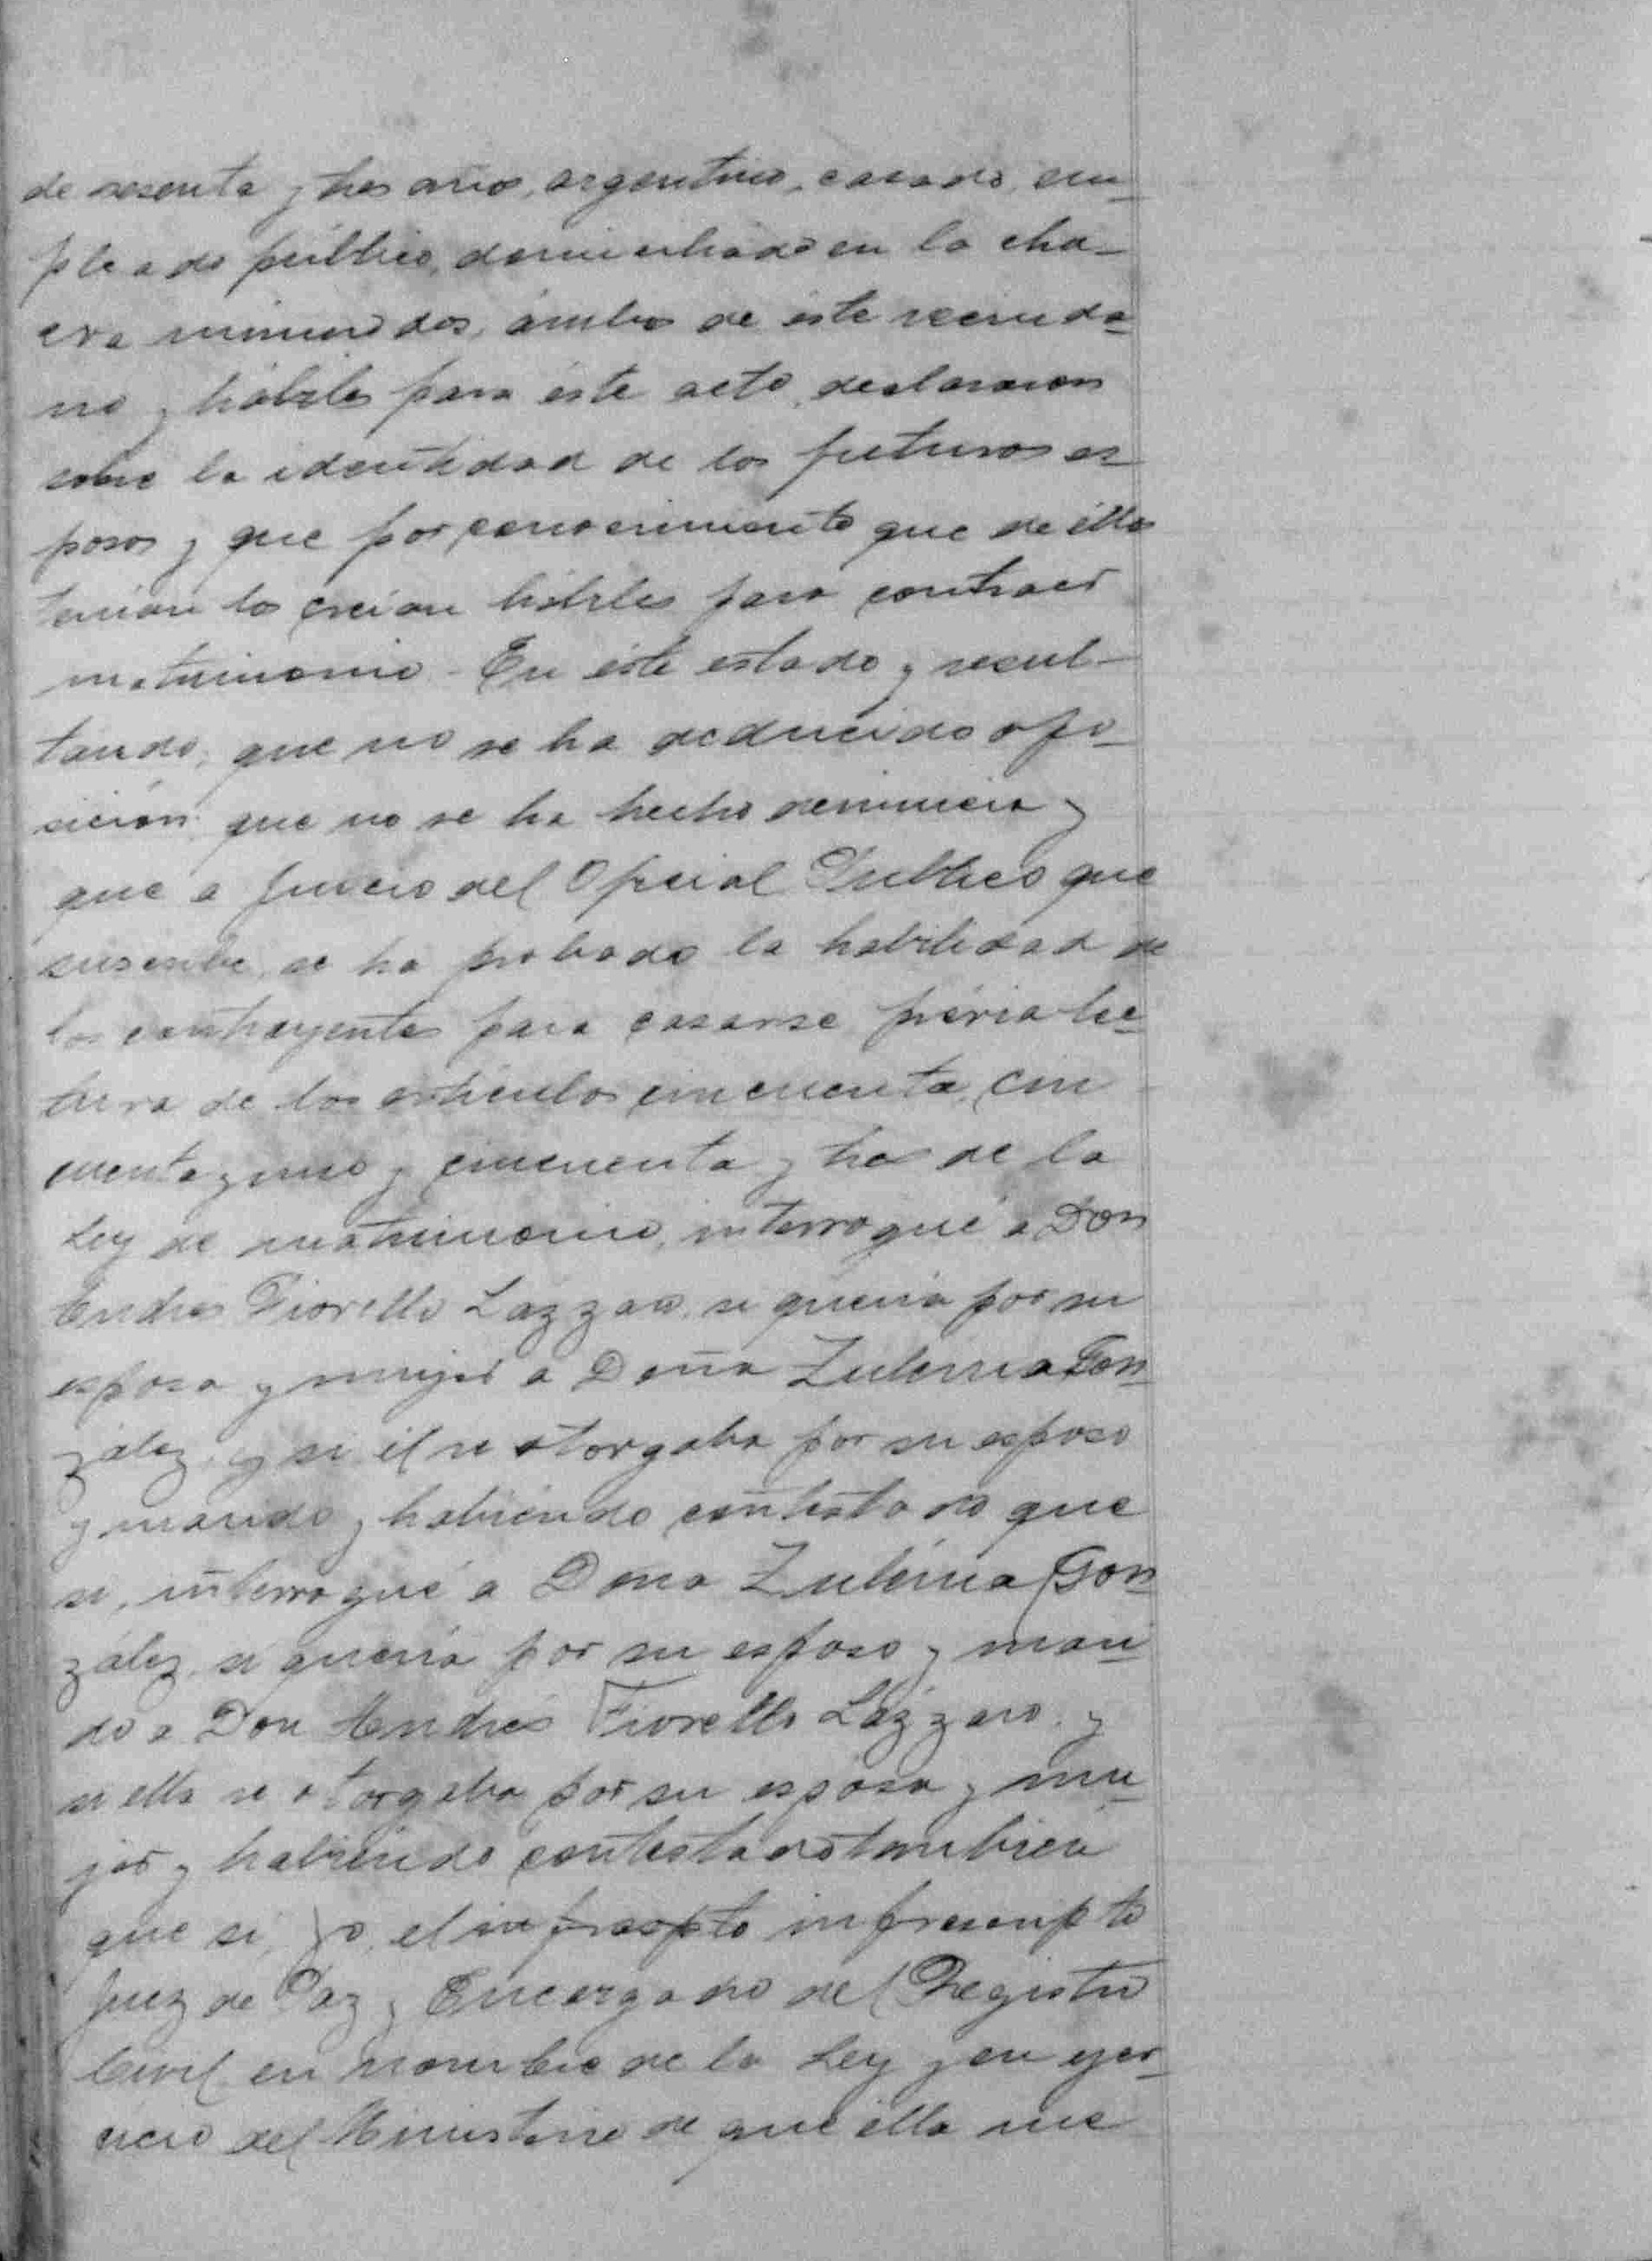 de sesenta y tres años, argentino, casado, em-
pleado público, domiciliado en la cha-
cra número dos, ámbos de éste vecinda-
rio y hábiles para éste acto, declararon
sobre la identidad de los futuros es-
posos y que por conocimiento que de éllos
tenían los creían hábiles para contraer
matrimonio - En éste estado y resul-
tando, que no se ha deducido opo-
sición que no se ha hecho denuncia y
que a juicio del Oficial Publico que
suscribe, se ha probado la habilidad de
los contrayentes para casarse prévia lec-
tura de los artículos cincuenta, cin
cuenta y uno y cincuenta y tres de la
Ley de matrimonio, interrogué a Don
Andres Fiorello Lazzaro, si quería por su
esposa y mujer a Doña Zulema Gon-
zález, y si él se otorgaba por su esposo
y marido y habiendo contestado que
si, interrogué a Doña Zulema Gon-
zález, si quería por su esposo y mari-
do a Don Andrés Fiorello Lázzaro, y
si ella se otorgaba por su esposa y mu-
jer y habiendo contestado tambien
que si, yo, el infrascrpto infrascripto
Juez de Paz y Encargado del Registro
Civil en nombre de la Ley y en ejer-
cicio del Ministerio de que élla me